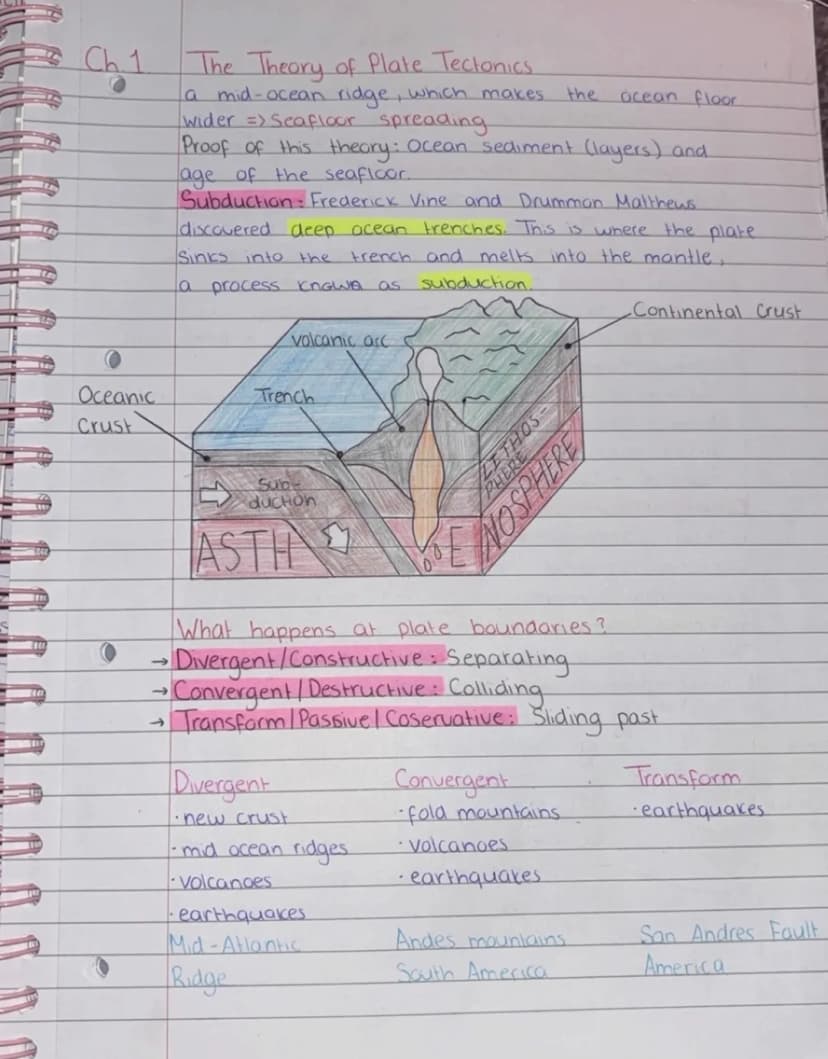 Ch 1 The Theory of Plate Tectonics
a mid-ocean ridge, which makes the ocean floor
wider => Seafloor spreading
Proof of this theory: Ocean sediment (layers) and
age of the seafloor.
Subduction: Frederick Vine and Drummon Matthews
discovered deep ocean trenches. This is where the plate
sinks into the trench and melts into the mantle,
a process known as subduction.
Continental Crust
volcanic arc
Oceanic
Crust
Trench
LITHOS-
PHERE
Sub-
duction
ASTH E NOSPHERE
What happens at plate boundaries?
→ Divergent/Constructive: Separating
→ Convergent/Destructive: Colliding
→ Transform/Passive/Coservative: Sliding past
Divergent Convergent Transform
· new crust · fold mountains · earthquakes
· mid ocean ridges · volcanoes
· volcanoes · earthquakes
· earthquakes
Mid-Atlantic Andes mountains San Andres Fault
Ridge South America America